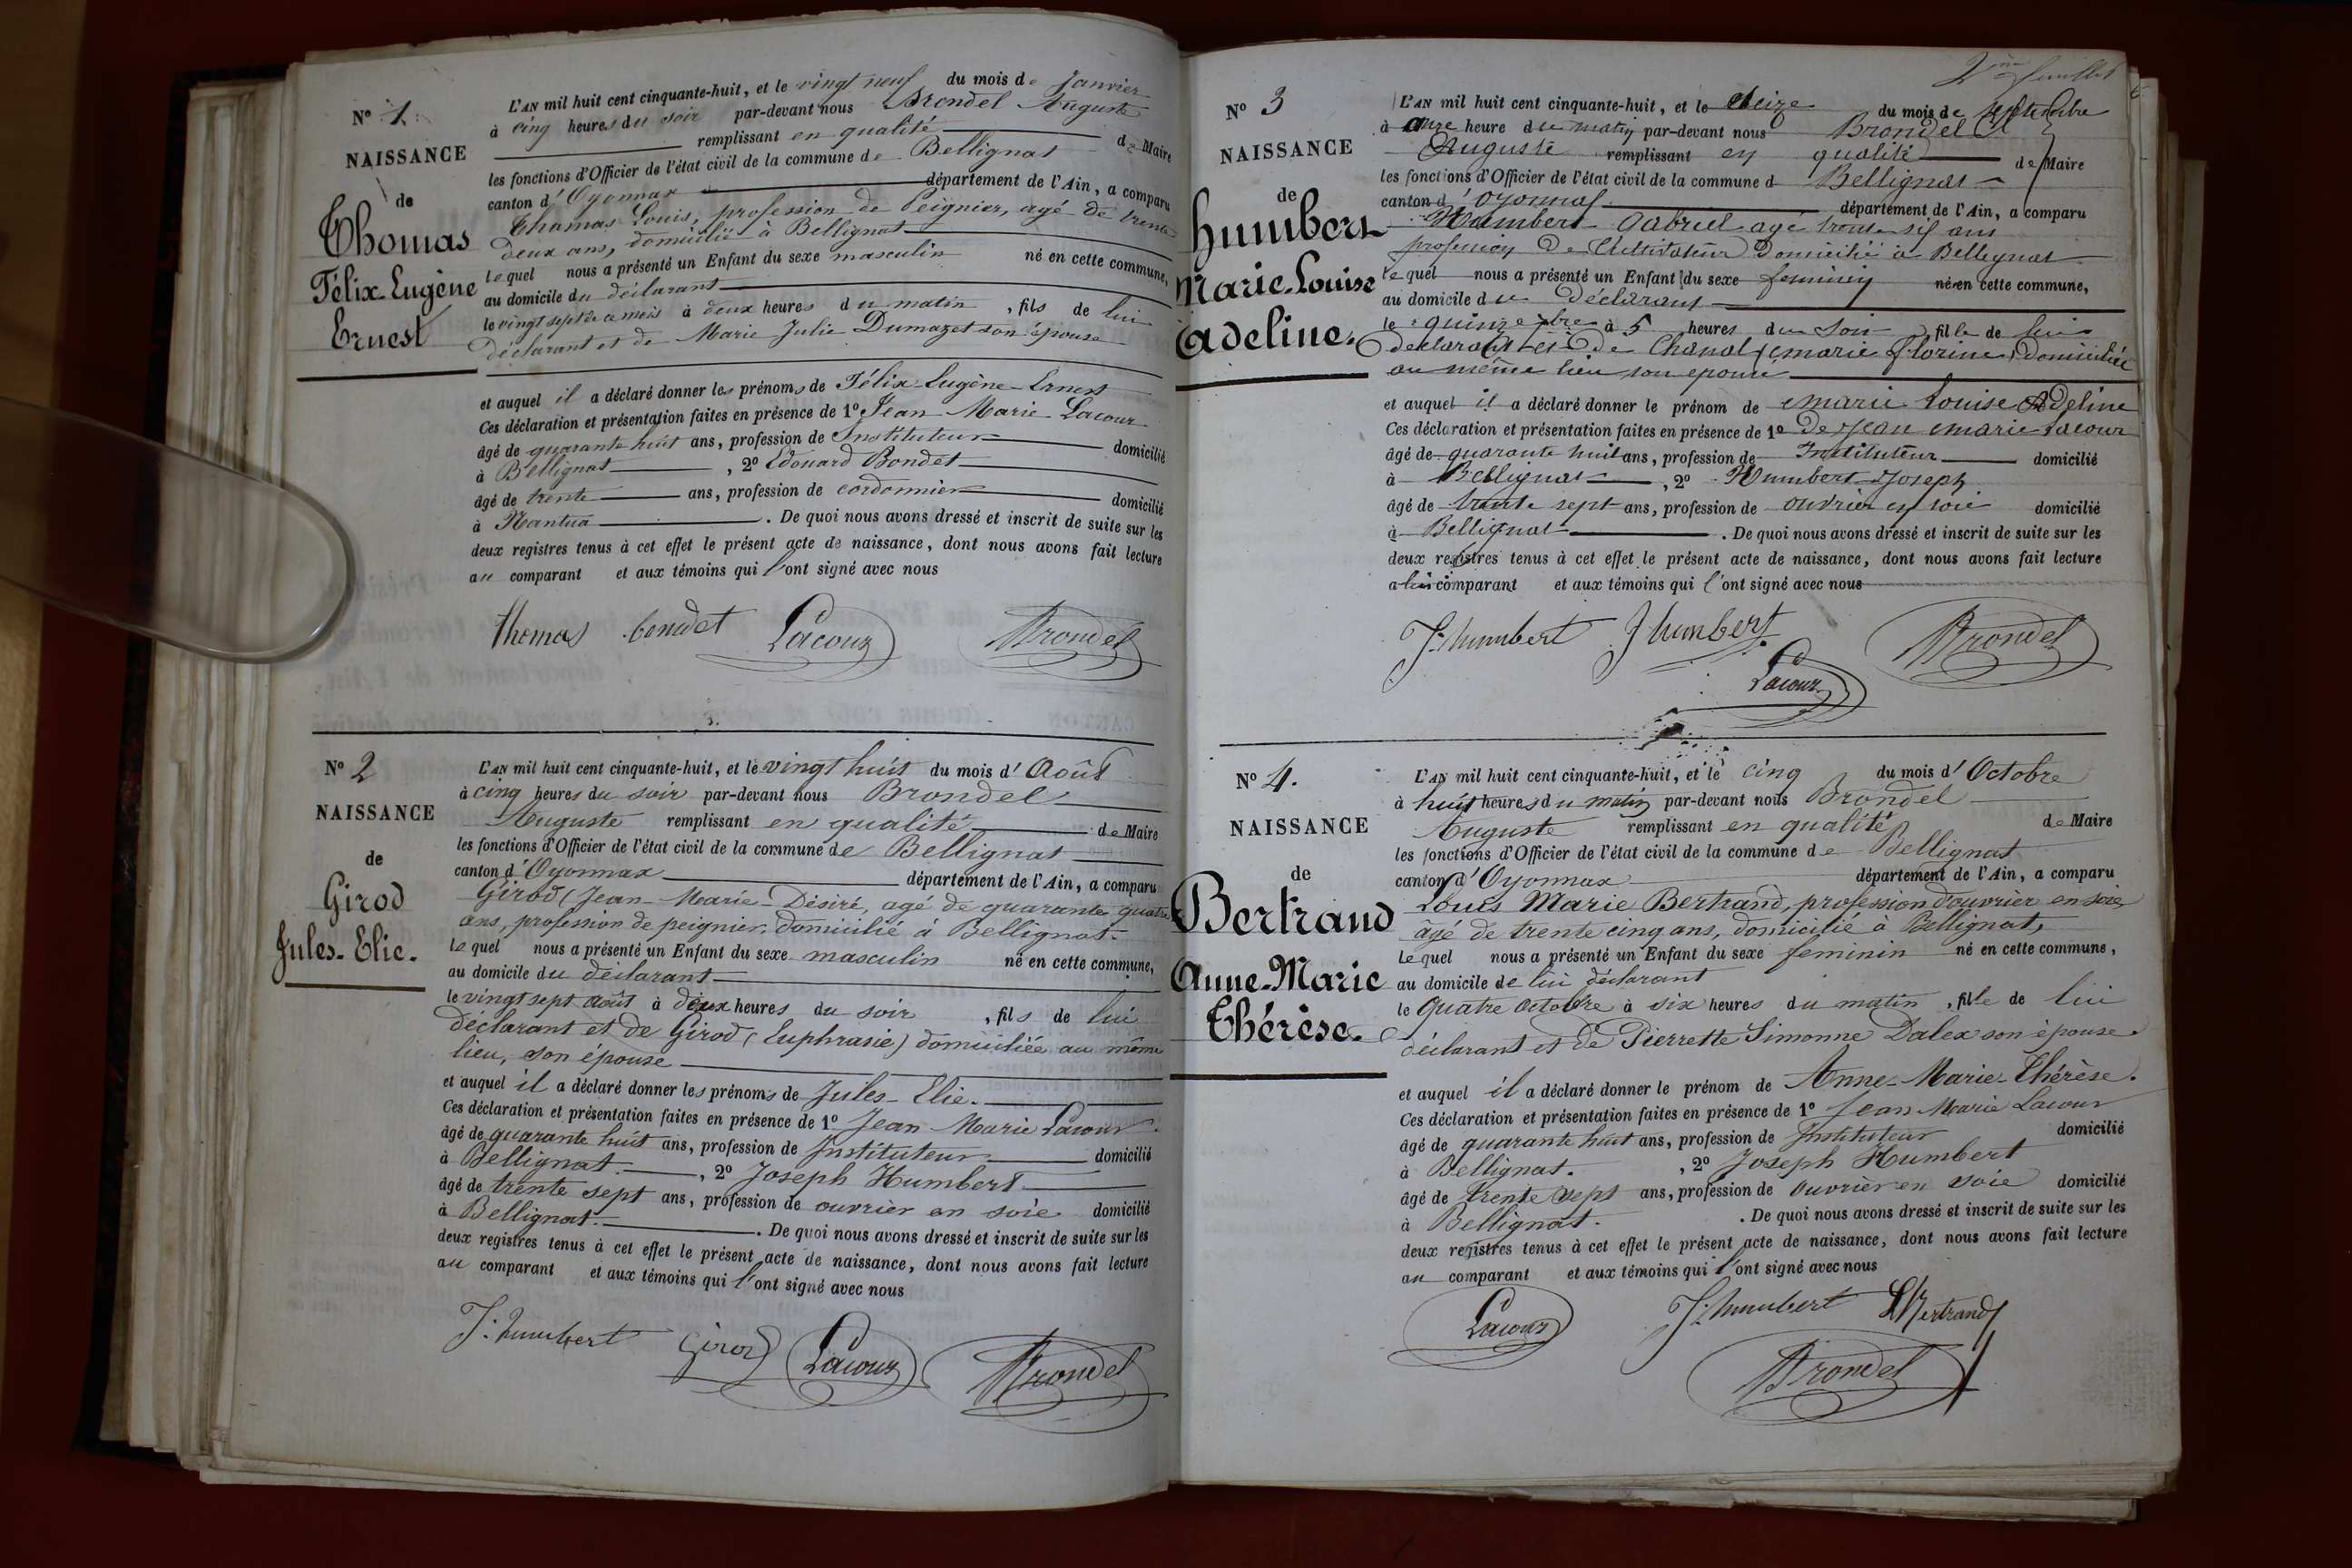 Nº 1.
NAISSANCE
de
Thomas
Félix-Eugène
Ernest
L'AN mil huit cent cinquante-huit, et le vingt neuf du mois de Janvier
à cinq heures du soir par-devant nous Brondel Auguste
remplissant en qualité de Maire
les fonctions d'Officier de l'état civil de la commune de Bellignat
canton d'Oyonnax département de l'Ain, a comparu
Thomas Louis, profession de Peignier, agé de trente
deux ans, domicilié à Bellignat
Lequel nous a présenté un Enfant du sexe masculin né en cette commune,
au domicile du déclarant
le vingt sept de ce mois à deux heures du matin, fils de lui
déclarant et de Marie Julie Dumazet son épouse
et auquel il a déclaré donner les prénoms de Félix-Eugène-Ernest
Ces déclaration et présentation faites en présence de 1º Jean-Marie Lacour
âgé de quarante huit ans, profession de Instituteur domicilié
à Bellignat, 2º Edouard Bondet
âgé de trente ans, profession de cordonnier domicilié
à Nantua. De quoi nous avons dressé et inscrit de suite sur les
deux registres tenus à cet effet le présent acte de naissance, dont nous avons fait lecture
au comparant et aux témoins qui l'ont signé avec nous
thomas bondet Lacour Brondel
Nº 2
NAISSANCE
de
Girod
Jules-Elie.
L'AN mil huit cent cinquante-huit, et le vingt huit du mois d'Août
à cinq heures du soir par-devant nous Brondel
Auguste remplissant en qualité de Maire
les fonctions d'Officier de l'état civil de la commune de Bellignat
canton d'Oyonnax département de l'Ain, a comparu
Girod (Jean-Marie-Désiré, agé de quarante quatre
ans, profession de peignier, domicilié à Bellignat.
Lequel nous a présenté un Enfant du sexe masculin né en cette commune,
au domicile du déclarant
le vingt sept août à deux heures du soir, fils de lui
déclarant et de Girod (Euphrasie) domiciliée au même
lieu, son épouse
et auquel il a déclaré donner les prénoms de Jules-Elie.
Ces déclaration et présentation faites en présence de 1º Jean-Marie Lacour
âgé de quarante huit ans, profession de Instituteur domicilié
à Bellignat., 2º Joseph Humbert
âgé de trente sept ans, profession de ouvrier en soie domicilié
à Bellignat. De quoi nous avons dressé et inscrit de suite sur les
deux registres tenus à cet effet le présent acte de naissance, dont nous avons fait lecture
au comparant et aux témoins qui l'ont signé avec nous
J. humbert Girod Lacour Brondel
2me feuillet
Nº 3
NAISSANCE
de
humbert
Marie-Louise
Adeline.
L'AN mil huit cent cinquante-huit, et le seize du mois de septembre
à onze heure du matin par-devant nous Brondel
Auguste remplissant en qualité de Maire
les fonctions d'Officier de l'état civil de la commune d Bellignat
canton d'oyonnax département de l'Ain, a comparu
Humbert Gabriel agé trente six ans
profession de Cultivateur Domicilié à Bellignat
Lequel nous a présenté un Enfant du sexe feminin né en cette commune,
au domicile du déclarant
le quinze à 5 heures du Soir, fille de lui
declarant et de Chanal marie florine, Domiciliée
au même lieu son epouse
et auquel il a déclaré donner le prénom de marie Louise Adeline
Ces déclaration et présentation faites en présence de 1º De Jean marie Lacour
âgé de quarante huit ans, profession de Instituteur domicilié
à Bellignat, 2º Humbert Joseph
âgé de trente sept ans, profession de ouvrier en soie domicilié
à Bellignat. De quoi nous avons dressé et inscrit de suite sur les
deux registres tenus à cet effet le présent acte de naissance, dont nous avons fait lecture
a lui comparant et aux témoins qui l'ont signé avec nous
J. humbert J humbert Brondel
Lacour
Nº 4.
NAISSANCE
de
Bertrand
Anne-Marie
Thérèse.
L'AN mil huit cent cinquante-huit, et le cinq du mois d'Octobre
à huit heures du matin par-devant nous Brondel
Auguste remplissant en qualité de Maire
les fonctions d'Officier de l'état civil de la commune de Bellignat
canton d'Oyonnax département de l'Ain, a comparu
Louis Marie Bertrand, profession d'ouvrier en soie,
âgé de trente cinq ans, domicilié à Bellignat,
Lequel nous a présenté un Enfant du sexe feminin né en cette commune,
au domicile de lui déclarant
le quatre octobre à six heures du matin, fille de lui
déclarant et de Pierrette Simonne Dalex son épouse.
et auquel il a déclaré donner le prénom de Anne-Marie-Thérèse.
Ces déclaration et présentation faites en présence de 1º Jean Marie Lacour
âgé de quarante huit ans, profession de Instituteur domicilié
à Bellignat., 2º Joseph Humbert
âgé de trente sept ans, profession de ouvrier en soie domicilié
à Bellignat. De quoi nous avons dressé et inscrit de suite sur les
deux registres tenus à cet effet le présent acte de naissance, dont nous avons fait lecture
au comparant et aux témoins qui l'ont signé avec nous
Lacour J. humbert LBertrand
Brondel